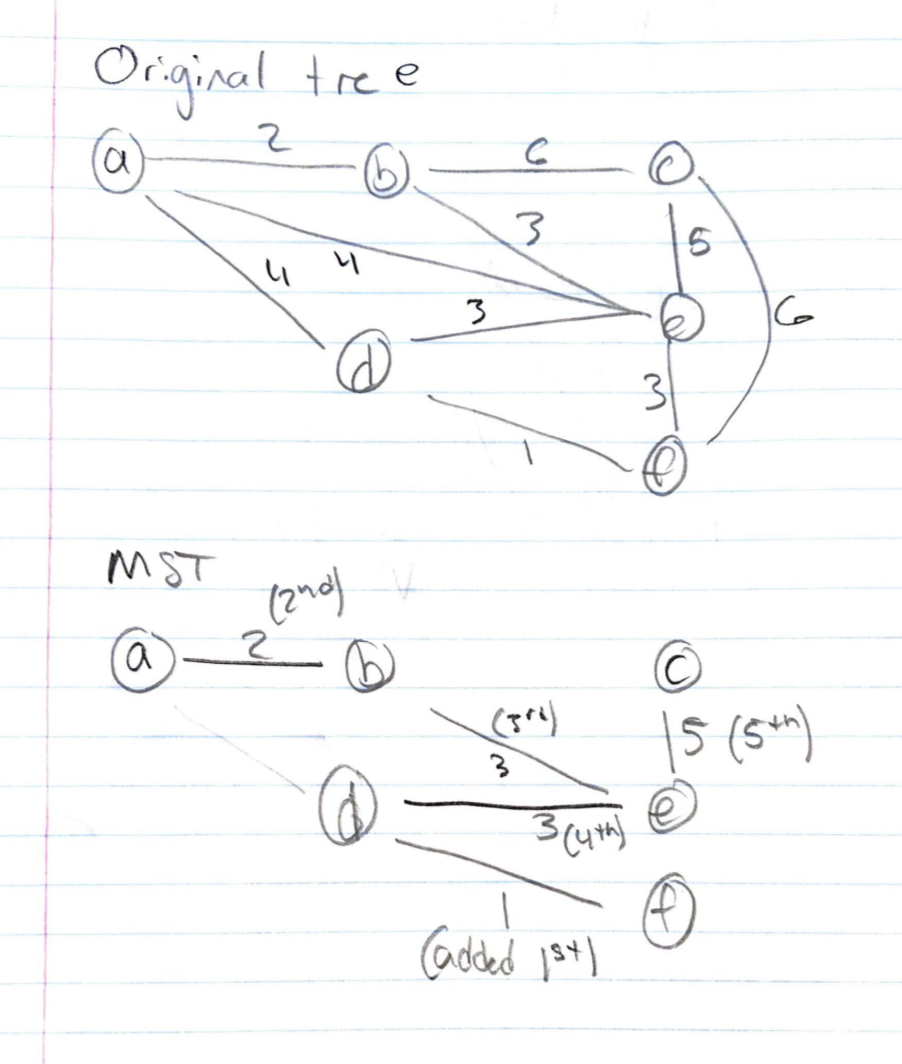 Original tree
a 2 b 6 c
3 5
4 4
3 e 6
d 3
1 f
MST
(2nd)
a 2 b c
(3rd) 5 (5th)
3
d e
3 (4th)
1 f
(added 1st)